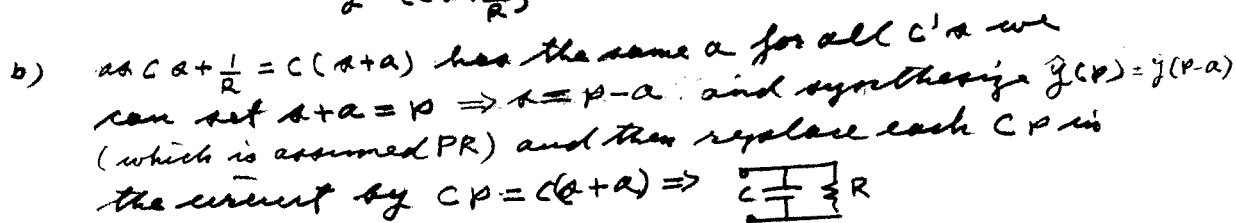 R
b) as Cs + 1/R = C(s+a) has the same a for all C's we
can set s+a = p ⇒ s = p-a and synthesize ŷ(p) = y(p-a)
(which is assumed PR) and then replace each Cp in
the circuit by Cp = C(s+a) ⇒ C R